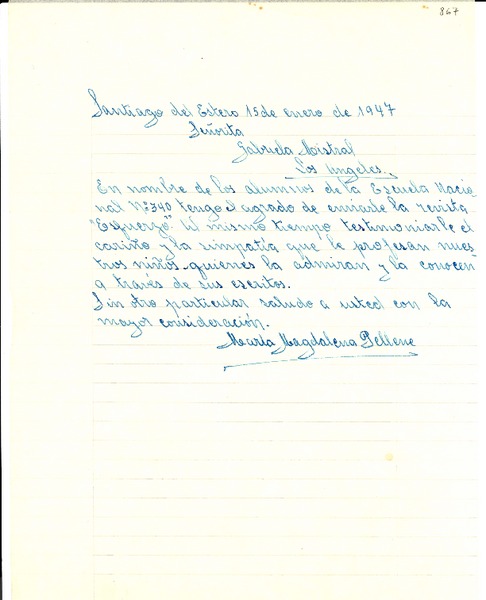 867
Santiago del Estero 15 de enero de 1947
Señorita
Gabriela Mistral
Los Angeles.
En nombre de los alumnos de la Escuela Nacio-
nal Nº 340 tengo el agrado de enviarle la revista
"Esfuerzo". Al mismo tiempo testimoniarle el
cariño y la simpatía que le profesan nues-
tros niños quienes la admiran y la conocen
a través de sus escritos.
Sin otro particular saludo a usted con la
mayor consideración.
María Magdalena Pellene